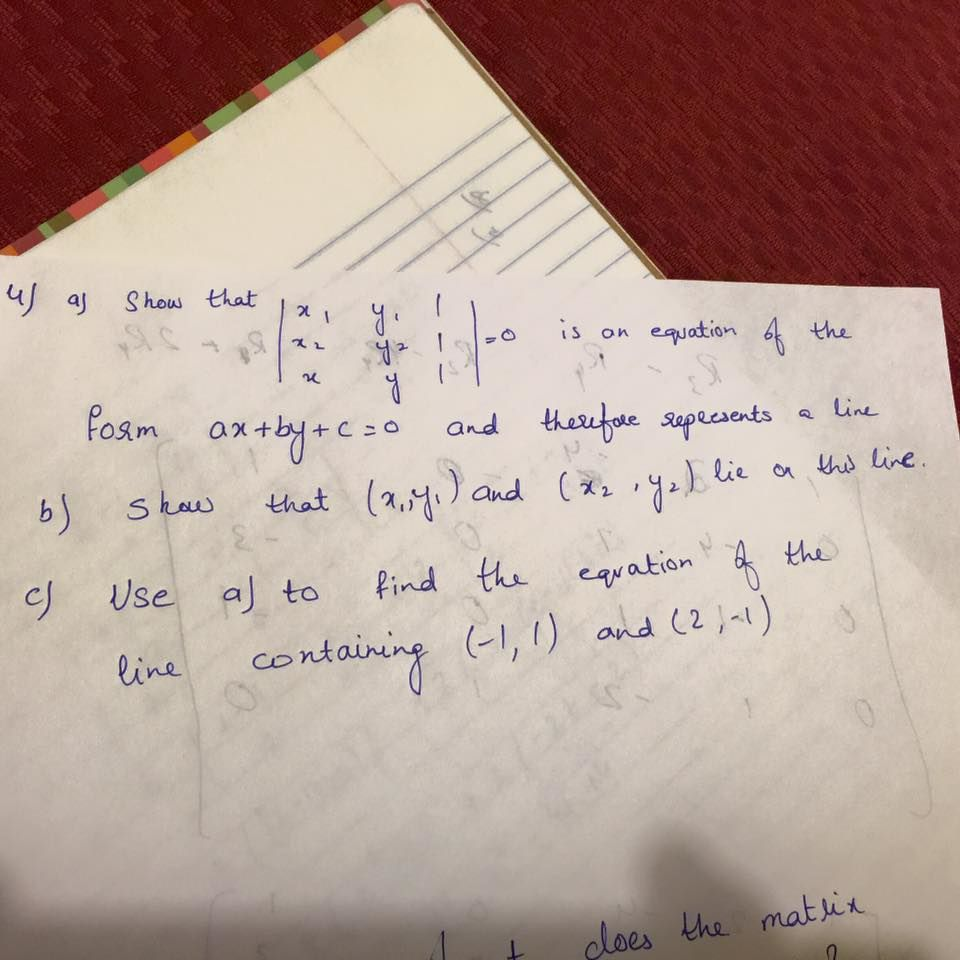 4) a) Show that | x₁ y₁ 1 | = 0 is an equation of the
| x₂ y₂ 1 |
| x y 1 |
form ax+by+c=0 and therefore represents a line
b) Show that (x₁,y₁) and (x₂,y₂) lie on this line.
c) Use a) to find the equation of the
line containing (-1, 1) and (2,-1)
does the matrix